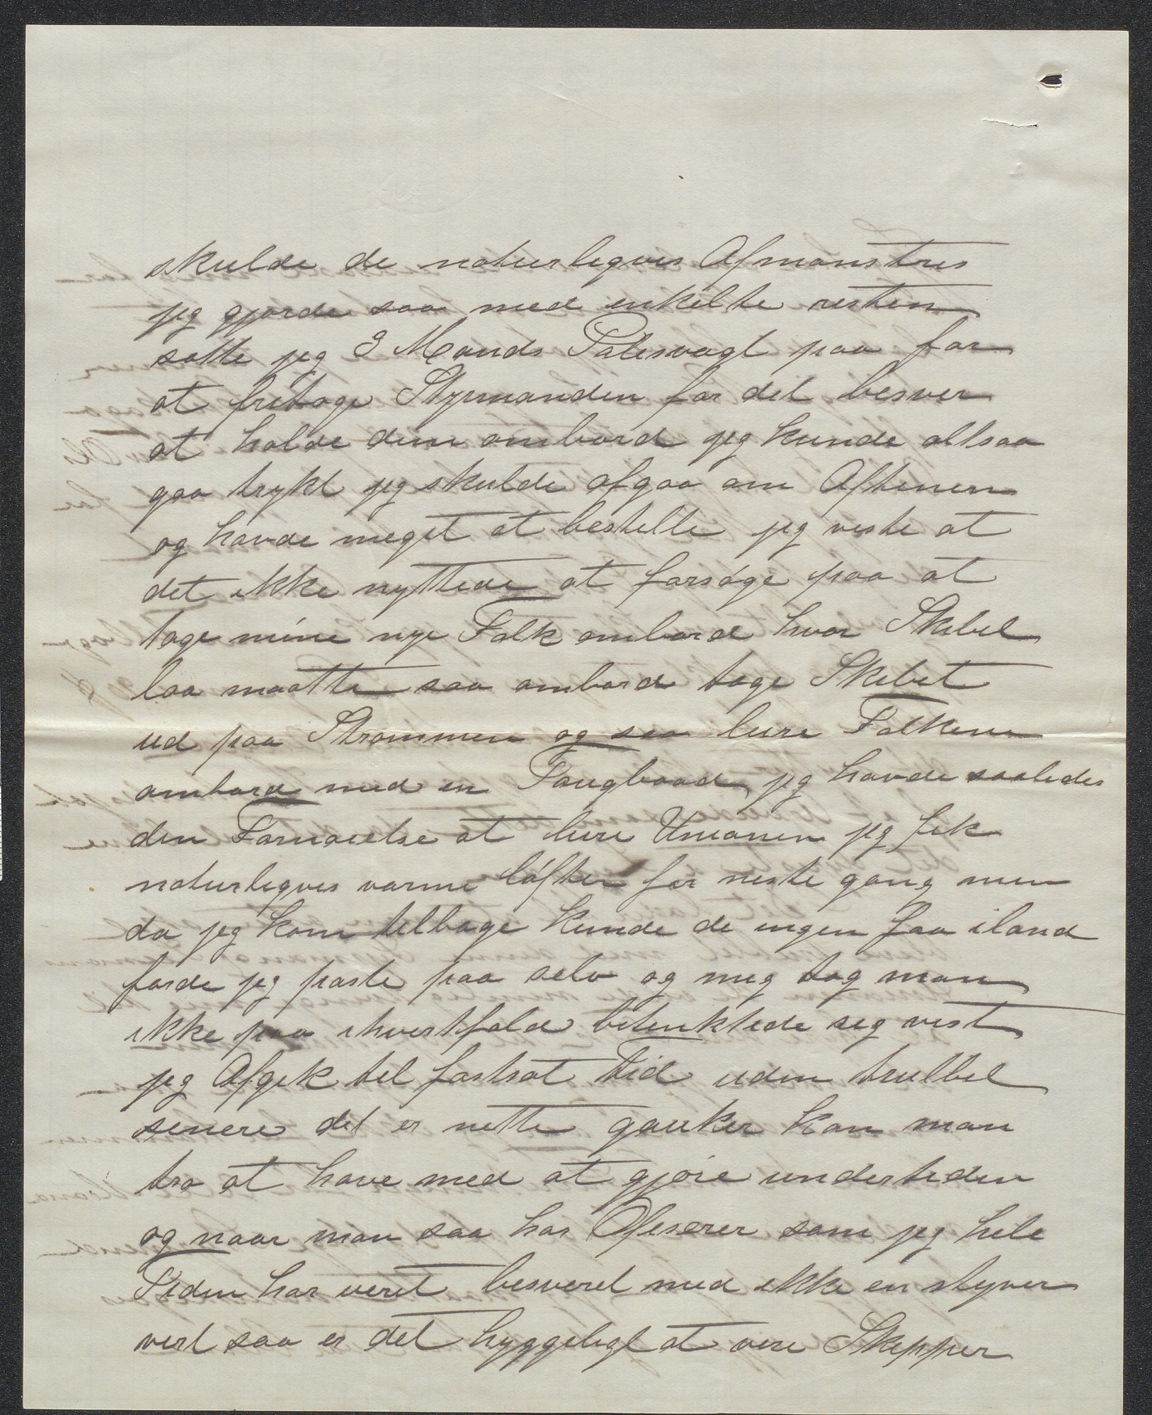 skulde de naturligvis Afmønstres
jeg gjorde saa med enkelte resten
satte jeg 3 Mands Polisvagt paa for
at fritage Styrmanden for det besver
at holde dem ombord jeg kunde altsaa
gaa trykt jeg skulde afgaa om Aftenen
og havde meget at bestille jeg viste at
det ikke nyttede at forsøge paa at
tage mine nye Folk ombord hvor Skibet
laa maatte saa ombord tage Skibet
ud paa Strømmen og saa lure Folkene
ombord med en Tougbaad, jeg havde saaledes
den Fornøielse at lure Unionen jeg fik
naturligvis varme løfter for neste gang men
da jeg kom tilbage kunde de ingen faa iland
forde jeg paste paa selv og mig tog man
ikke paa ihvertfald betenktede seg vist
jeg Afgik til fastsat Tid uden trubbel
senere det er nette gauker kan man
tro at have med at gjøre undertiden
og naar man saa har Ofiserer som jeg hele
Tiden har veret besveret med ikke en styver
vert saa er det hyggeligt at vere Skipper